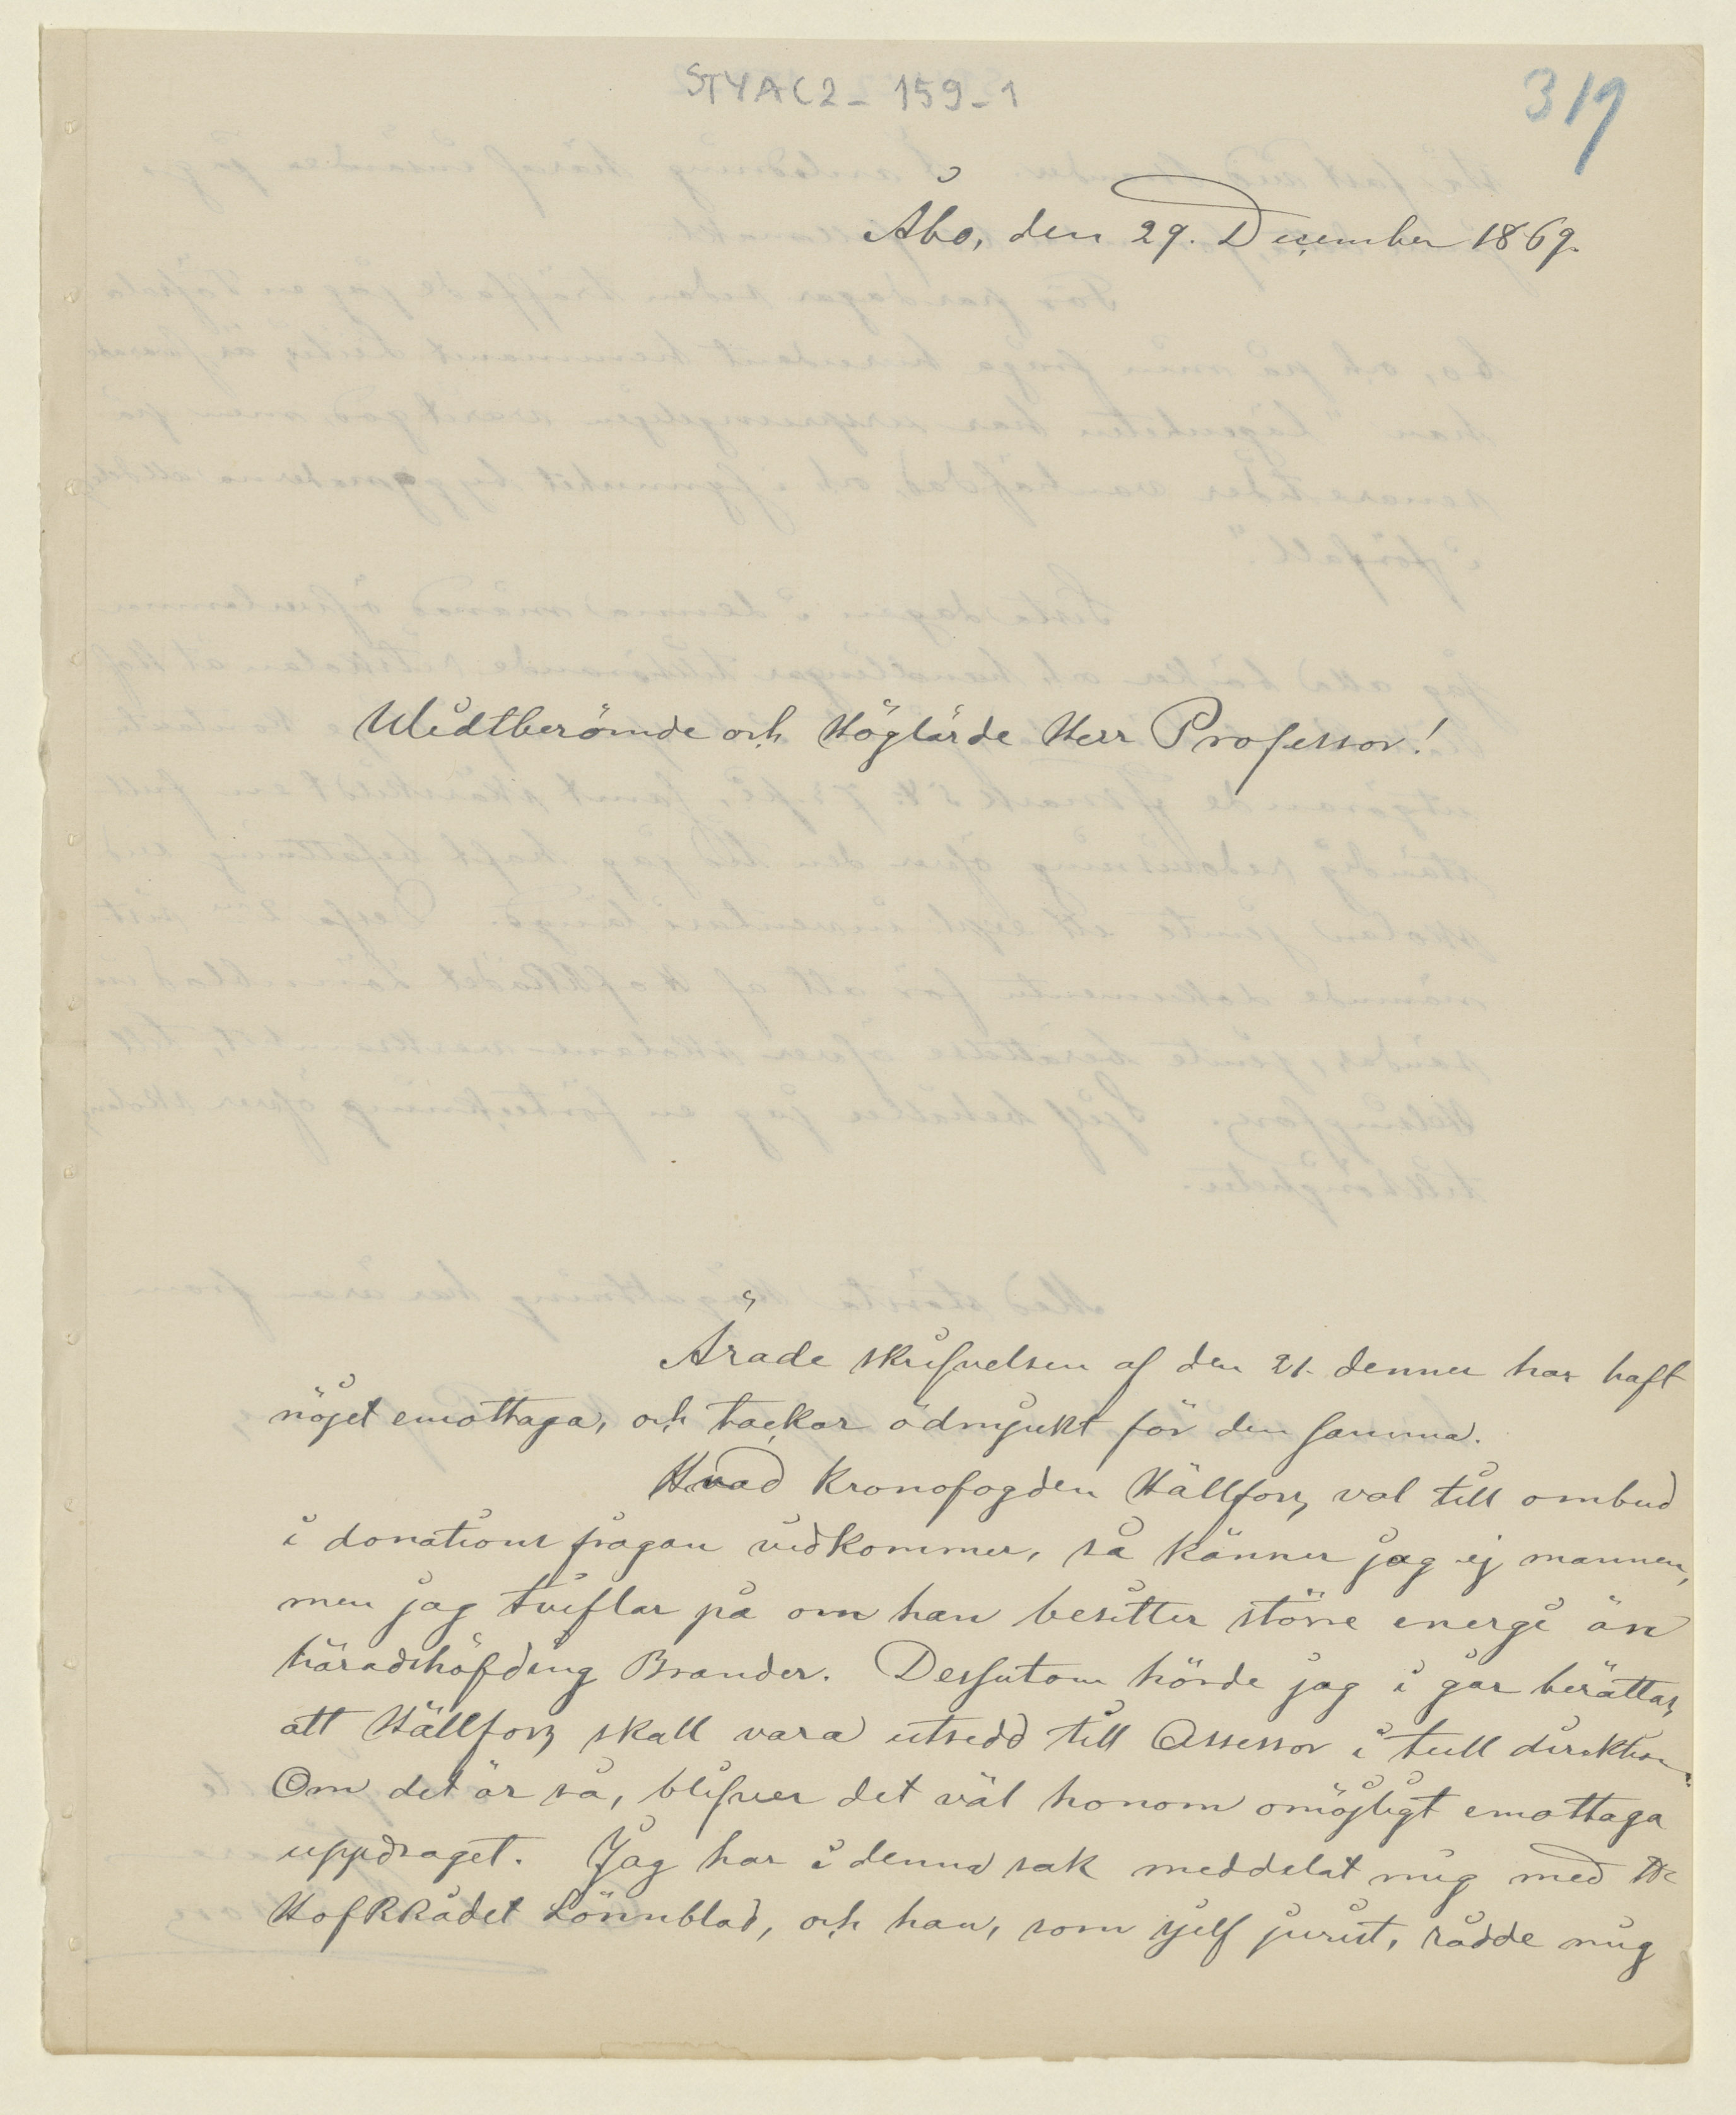 STYAC2 - 159 - 1
317
Åbo, den 29. December 1869.
Widtberömde och Höglärde Herr Professor!
Ärade skrifvelsen af den 21. dennes har haft
nöjet emottaga, och tackar ödmjukt för den samma.
Hvad Kronofogden Hällfors, val till ombud
i donations frågan vidkommer, så känner jag ej mannen,
men jag tviflar på om han besitter större energi än
häradshöfding Brander. Dessutom hörde jag i går berättas,
att Hällfors skall vara utsedd till Assessor i tull direktion.
Om det är så, blifver det väl honom omöjligt emottaga
uppdraget. Jag har i denna sak meddelat mig med Hr
HofRådet Lönnblad, och han, som sjelf jurist, rådde mig